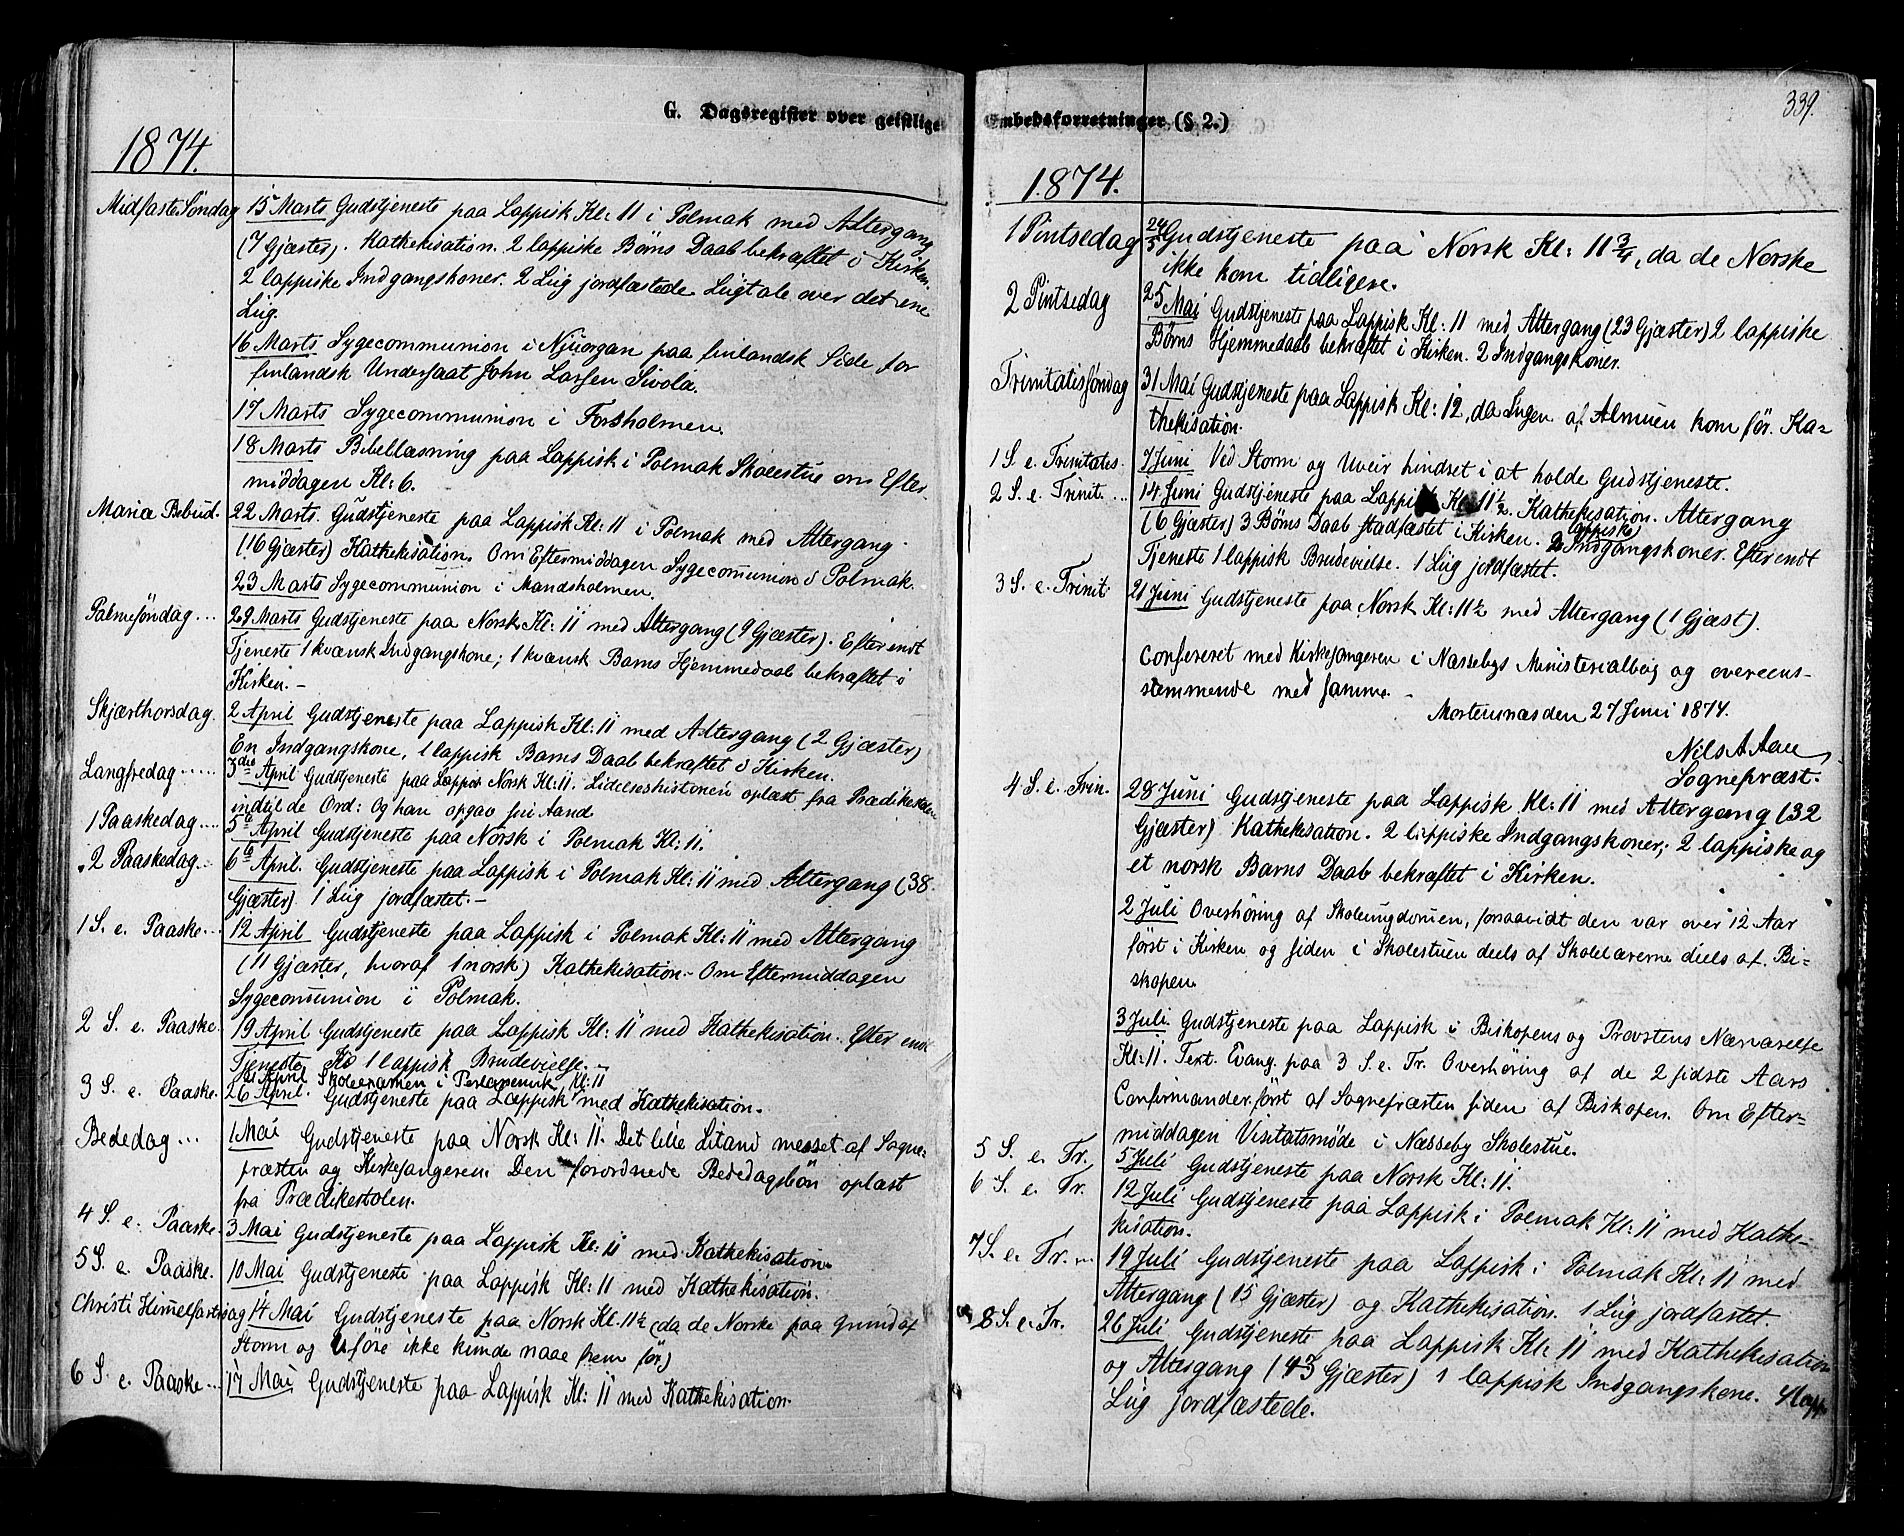 G. Dagsregister over geistlige
1874.
Midfaste Søndag 15 Marts Gudstjeneste paa Lappisk Kl: 11 i Polmak med Altergang
(7 Gjæster). Kathekisation. 2 lappiske Børns Daab bekræftet i Kirken.
2 lappiske Indgangskoner. 2 Liig jordfæstede Liigtale over det ene
Liig.
16 Marts Sygecommunion i Njuorgan paa finlandsk Side for
finlandsk Undersaat John Larsen Sivola.
17 Marts Sygecommunion i Forsholmen.
18 Marts Bibellæsning paa Lappisk i Polmak Skolestue om Efter-
middagen Kl: 6.
Mariæ Bebud. 22 Marts. Gudstjeneste paa Lappisk Kl: 11 i Polmak med Altergang
(16 Gjæster) Kathekisation. Om Eftermiddagen Sygecomunion i Polmak.
23 Marts Sygecommunion i Mandsholmen.
Palmesøndag... 29 Marts Gudstjeneste paa Norsk Kl: 11 med Altergang (9 Gjæster). Efter endt
Tjeneste 1 kvænsk Indgangskone; 1 kvænsk Barns Hjemmedaab bekræftet i
Kirken. –
Skjærthorsdag. 2 April Gudstjeneste paa Lappisk Kl: 11 med Altergang (2 Gjæster)
En Indgangskone, 1 lappisk Barns Daab bekræftet i Kirken.
Langfredag...... 3die April Gudstjeneste paa Norsk Kl: 11. Lidelseshistorien oplæst fra Prædikestolen
indtil de Ord: Og han opgav sin Aand
1 Paaskedag.... 5te April Gudstjeneste paa Norsk i Polmak Kl: 11.
2 Paaskedag... 6te April. Gudstjeneste paa Lappisk i Polmak Kl: 11 med Altergang (38
Gjæster) 1 Liig jordfæstet. –
1 S. e. Paaske... 12 April Gudstjeneste paa Lappisk i Polmak Kl: 11 med Altergang
(11 Gjæster, hvoraf 1 norsk) Kathekisation – Om Eftermiddagen
Sygecomunion i Polmak.
2 S. e. Paaske. 19 April Gudstjeneste paa Lappisk Kl: 11 med Kathekisation. Efter endt
Tjeneste 1 lappisk Brudevielse. –
April Skoleexamen i Kl: 11
3 S. e. Paaske. 26 April. Gudstjeneste paa Lappisk med Kathekisation.
Bededag... 1 Mai Gudstjeneste paa Norsk Kl: 11. Det lille Litani messet af Sogne-
præsten og Kirkesangeren. Den forordnede Bededagsbøn oplæst
fra Prædikestolen.
4 S. e. Paaske. 3 Mai Gudstjeneste paa Lappisk Kl: 11 med Kathekisation
5 S. e. Paaske. 10 Mai Gudstjeneste paa Lappisk Kl: 11 med Kathekisation.
Christi Himelfartsdag 14 Mai Gudstjeneste paa Norsk Kl. 11½ (da de Norske paa Grund af
Storm og Uføre ikke kunde naae frem før)
6 S. e. Paaske... 17 Mai Gudstjeneste paa Lappisk Kl: 11 med Kathekisation.
Embedsforretninger (§ 2.)
339.
1874.
1 Pintsedag 24/5 Gudstjeneste paa Norsk Kl: 11¾, da de Norske
ikke kom tidligere.
2 Pintsedag 25 Mai Gudstjeneste paa Lappisk Kl: 11 med Altergang (23 Gjæster) 2 lappiske
Børns Hjemmedaab bekræftet i Kirken. 2 Indgangskoner.
Trinitatissøndag 31 Mai Gudstjeneste paa Lappisk Kl: 12, da Ingen af Almuen kom før. Ka-
thekisation.
1 S. e. Trinitatis. 7 Juni Ved Storm og Uveir hindret i at holde Gudstjeneste.
2 S. e. Trinit.... 14 Juni Gudstjeneste paa Lappisk Kl 11½. Kathekisation. Altergang
(6 Gjæster) 3 Børns Daab stadfæstet i Kirken. 2 lappiske Indgangskoner. Efter endt
Tjeneste 1 lappisk Brudevielse. 1 Liig jordfæstet.
3 S. e. Trinit. 21 Juni Gudstjeneste paa Norsk Kl: 11½ med Altergang (1 Gjæst).
Confereret med Kirkesangeren i Næssebys Ministerialbog og overeens-
stemmende med samme. –
Mortensnæs den 27 Juni 1874.
Nils A Aau
Sognepræst.
4 S. e. Trin. 28 Juni Gudstjeneste paa Lappisk Kl: 11 med Altergang (32
Gjæster) Kathekisation. 2 lappiske Indgangskoner; 2 lappiske og
et norsk Barns Daab bekræftet i Kirken.
2 Juli Overhøring af Skoleungdomen, forsaavidt den var over 12 Aar
først i Kirken og siden i Skolestuen deels af Skolelærerne deels af Bi-
skopen.
3 Juli. Gudstjeneste paa Lappisk i Biskopens og Provstens Nærværelse
Kl: 11. Text. Evang. paa 3 S. e. Tr. Overhøring af de 2 sidste Aars
Confirmander, først af Sognepræsten siden af Biskopen. Om Efter-
middagen Visitatsmøde i Næsseby Skolestue.
5 S. e. Tr. 5 Juli Gudstjeneste paa Norsk Kl: 11.
6 S. e. Tr. 12 Juli Gudstjeneste paa Lappisk i Polmak Kl: 11 med Kathe-
kisation.
7 S. e. Tr. 19 Juli Gudstjeneste paa Lappisk i Polmak Kl: 11 med
Altergang (15 Gjæster) og Kathekisation. 1 Liig jordfæstet.
8 S. e. Tr. 26 Juli Gudstjeneste paa Lappisk Kl: 11 med Kathekisation
og Altergang (43 Gjæster) 1 lappisk Indgangskone. 4 lapp.
Liig jordfæstede.